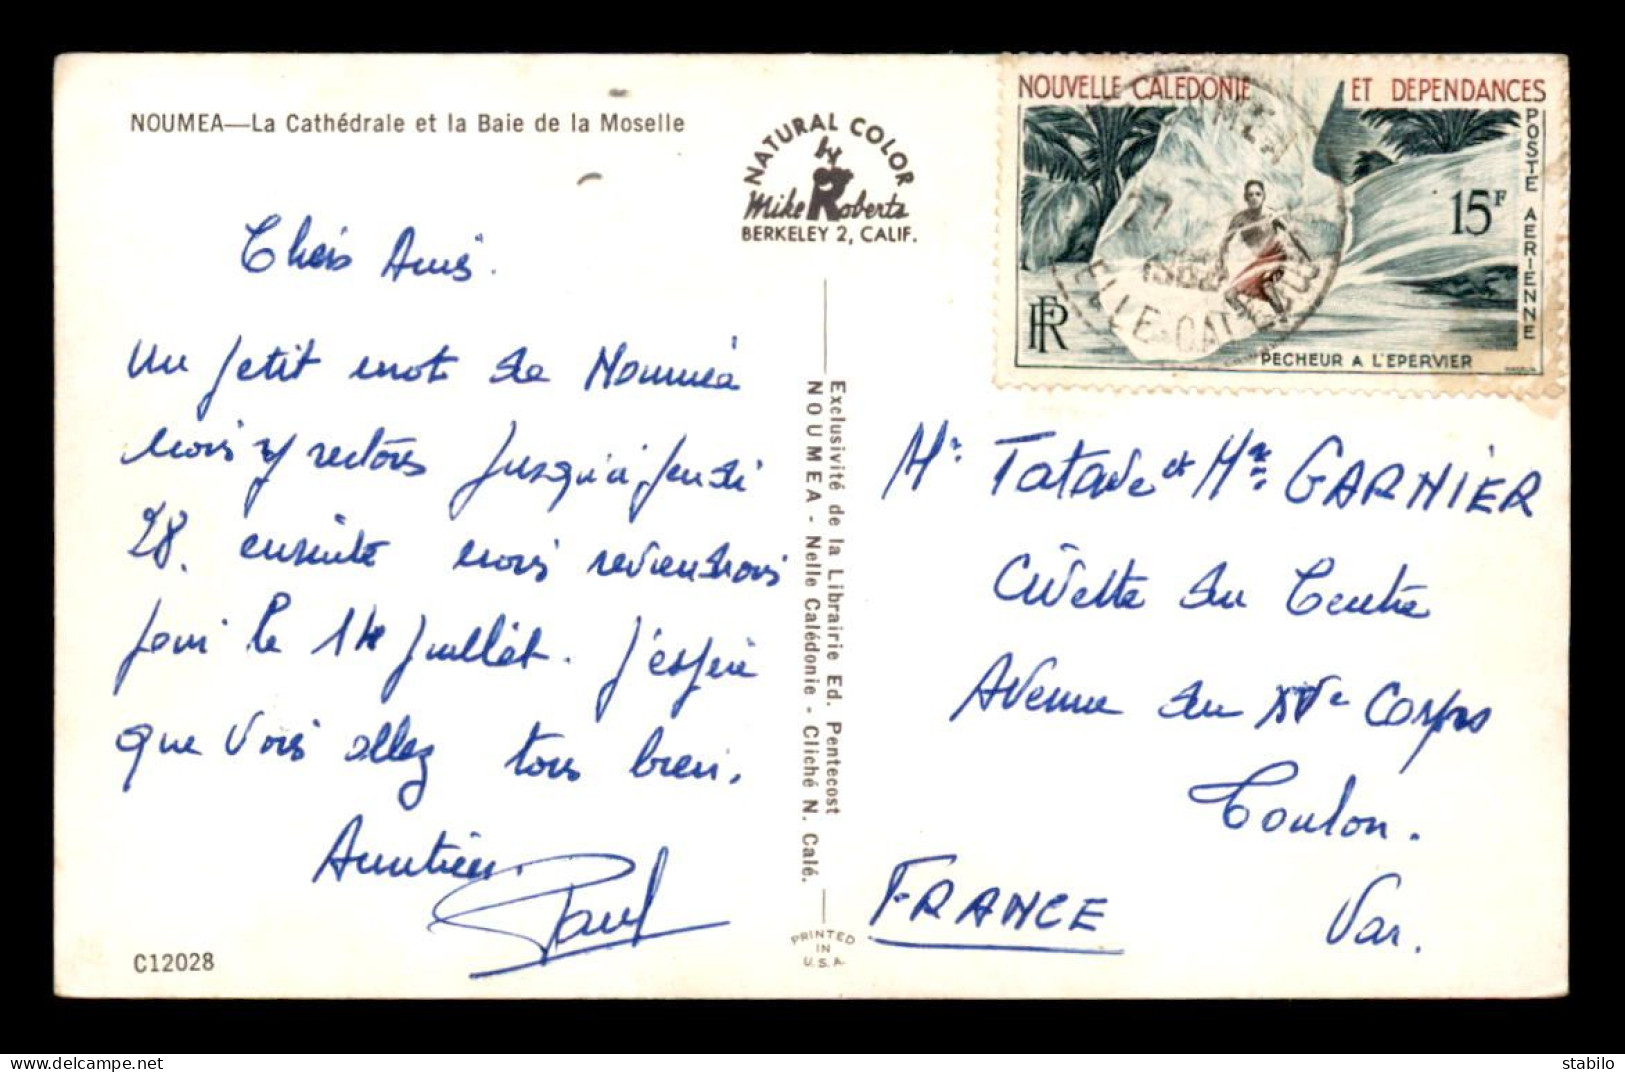 NOUMEA—La Cathédrale et la Baie de la Moselle
NATURAL COLOR
by
Mike Roberts
BERKELEY 2, CALIF.
Chers Amis.
Un petit mot de Nouméa
nous y restons jusqu'à jeudi
28. ensuite nous reviendrons
pour le 14 juillet. J'espère
que vous allez tous bien.
Amitiés.
Paul
C12028
Exclusivité de la Librairie Ed. Pentecost
NOUMEA - Nelle Calédonie - Cliché N. Calé.
PRINTED
IN
U.S.A.
NOUVELLE CALEDONIE ET DEPENDANCES
POSTE AERIENNE
15F
RF
PECHEUR A L'EPERVIER
27
ELLE-CALEDO
Mr. Tatave et Mme. GARNIER
Civette du Centre
Avenue du XVe Corps
Toulon.
Var.
FRANCE
stabilo